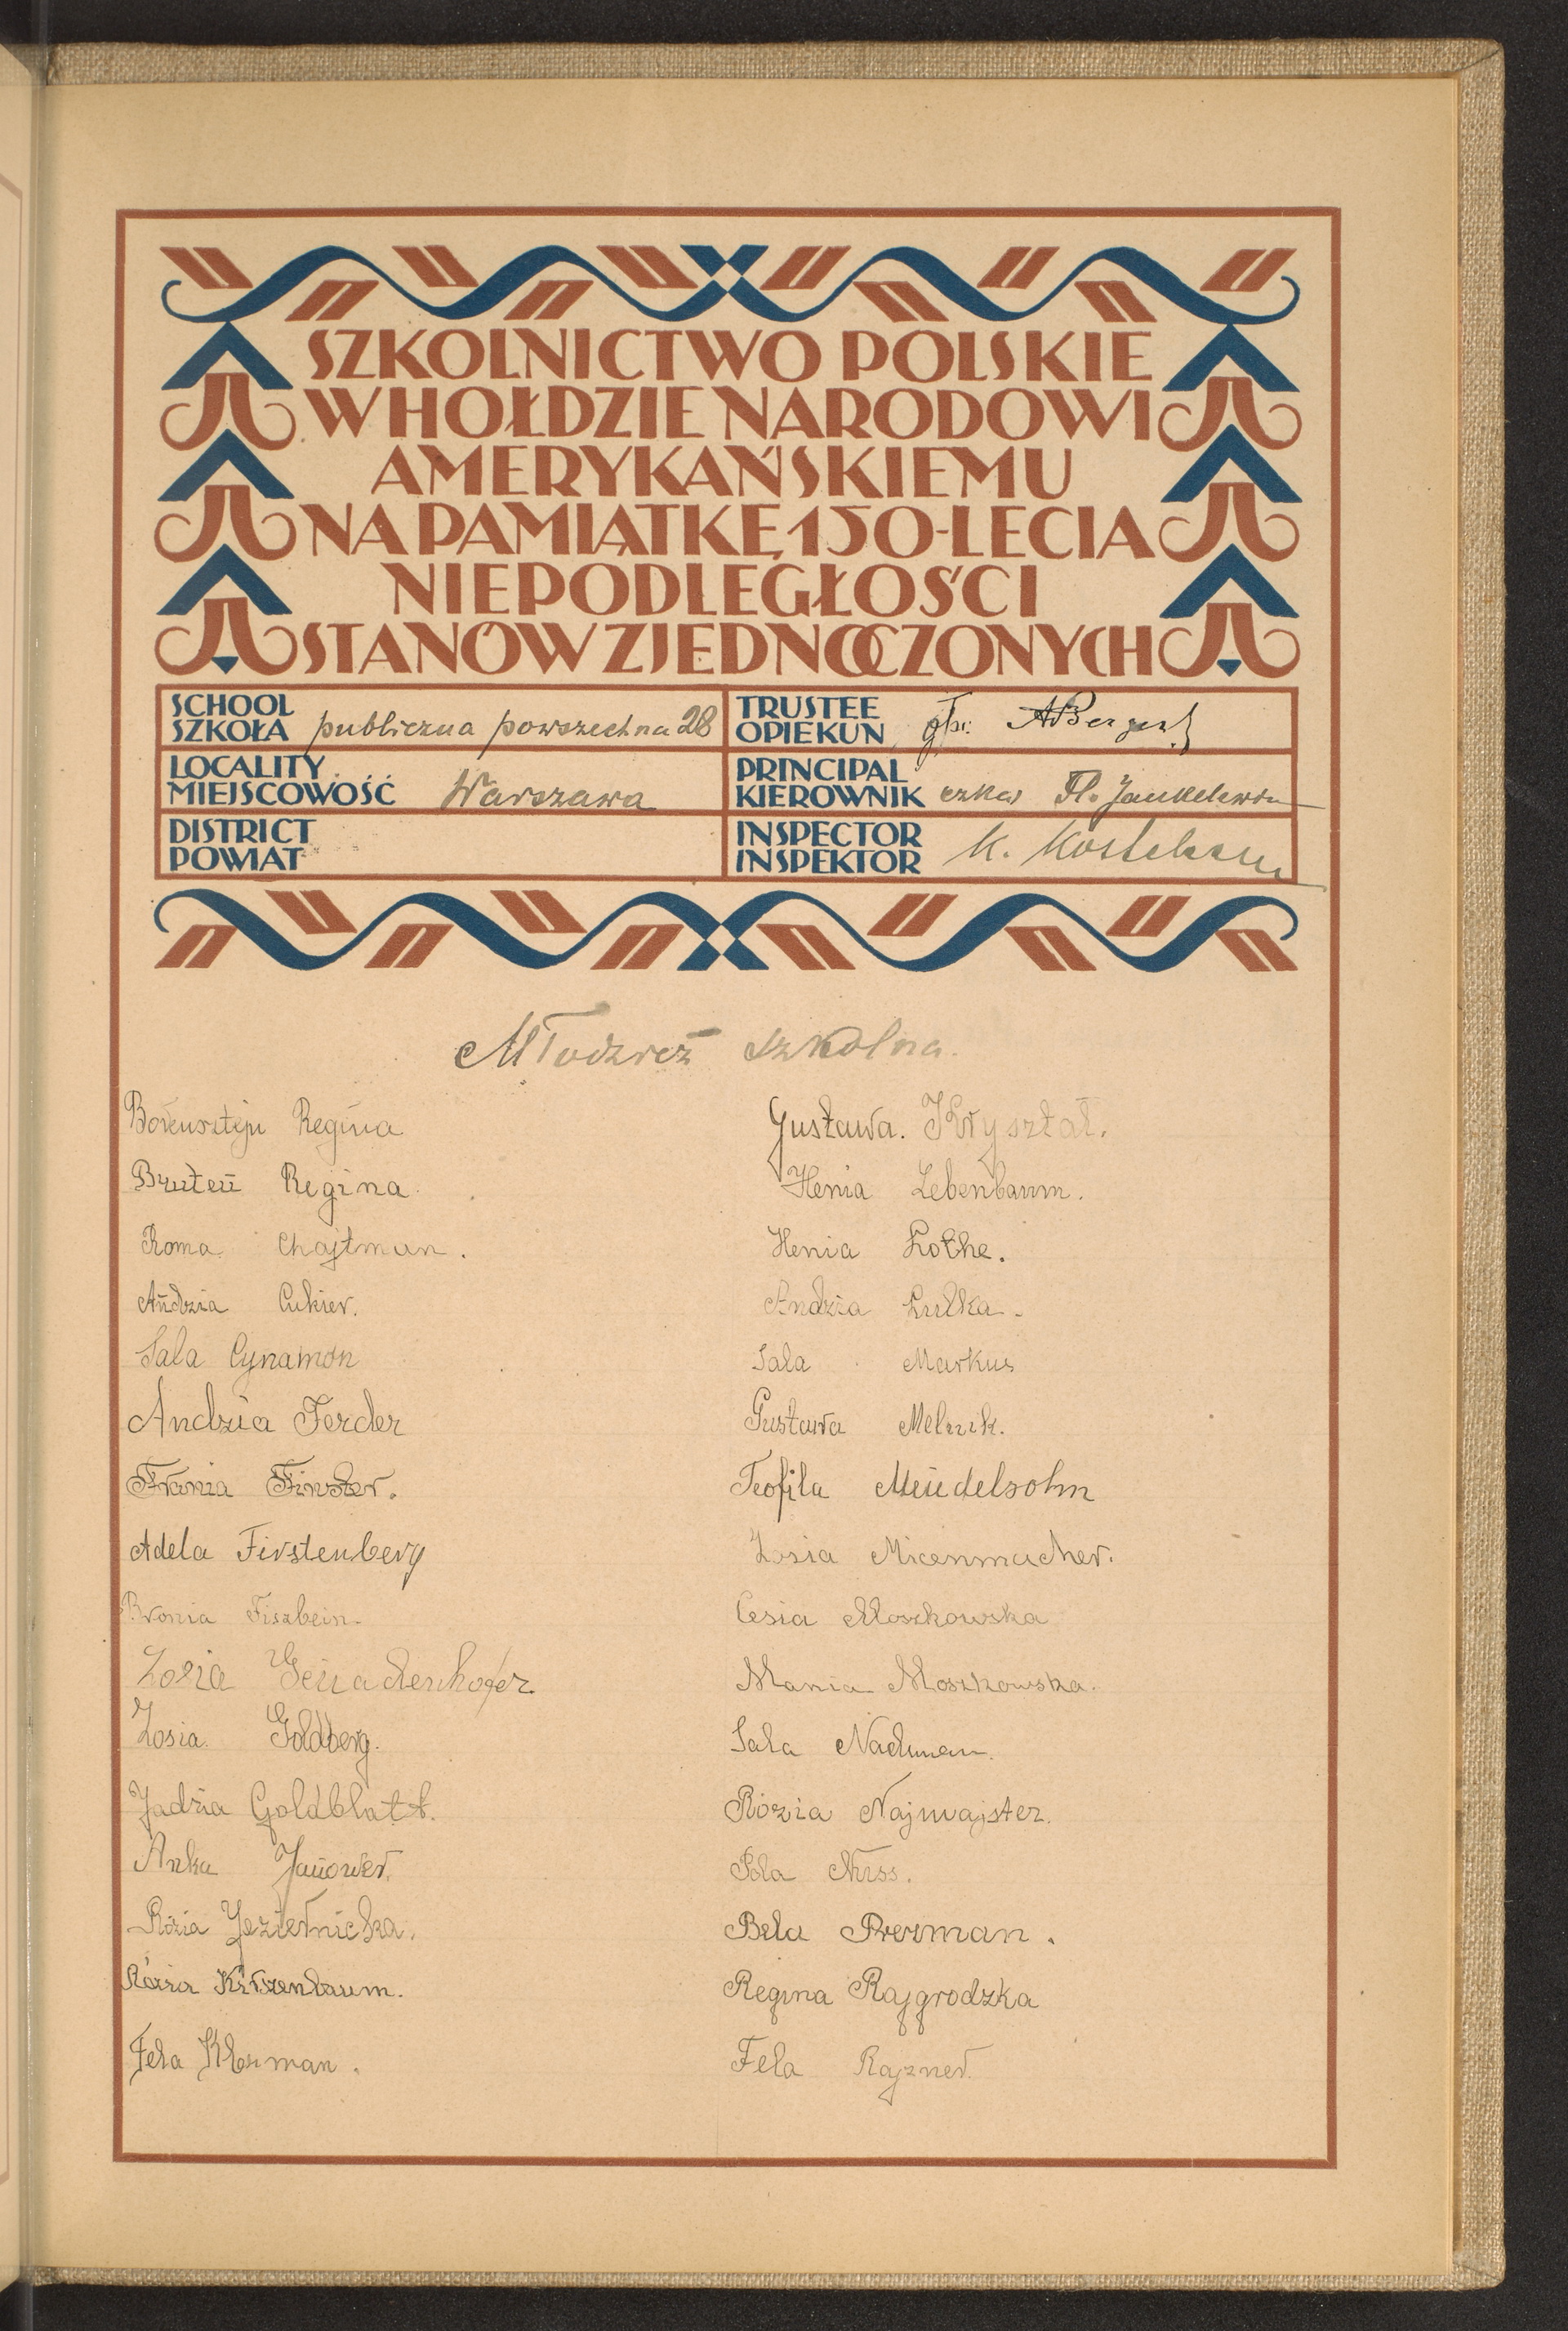 SZKOLNICTWO POLSKIE
W HOŁDZIE NARODOWI
AMERYKAŃSKIEMU
NA PAMIĄTKĘ 150-LECIA
NIEPODLEGŁOŚCI
STANÓW ZJEDNOCZONYCH
SCHOOL
SZKOŁA publiczna powszechna 28
TRUSTEE
OPIEKUN
LOCALITY
MIEJSCOWOŚĆ Warszawa
PRINCIPAL
KIEROWNIK
DISTRICT
POWIAT
INSPECTOR
INSPEKTOR K.
Młodzież szkolna.
Borensztejn Regina
Bruten Regina
Roma Chajtman.
Andzia Cukier.
Sala Cynamon
Andzia Ferder
Frania Finster.
Adela Firstenberg
Bronia Fiszbein.
Zosia
Zosia Goldberg.
Jadzia Goldblatt.
Anka Janower.
Rózia Jeziernicka.
Rózia Kirszenbaum.
Fela Klerman.
Gustawa. Kryształ.
Henia Lebenbaum.
Henia Lothe.
Andzia Lulka.
Sala Markus
Gustawa Melnik.
Teofila Mendelsohn
Zosia Micenmacher.
Cesia Moszkowska
Mania Moszkowska.
Sala Nachman.
Rózia Najmajster.
Pola Nuss.
Bela Perman.
Regina Rajgrodzka
Fela Rajzner.